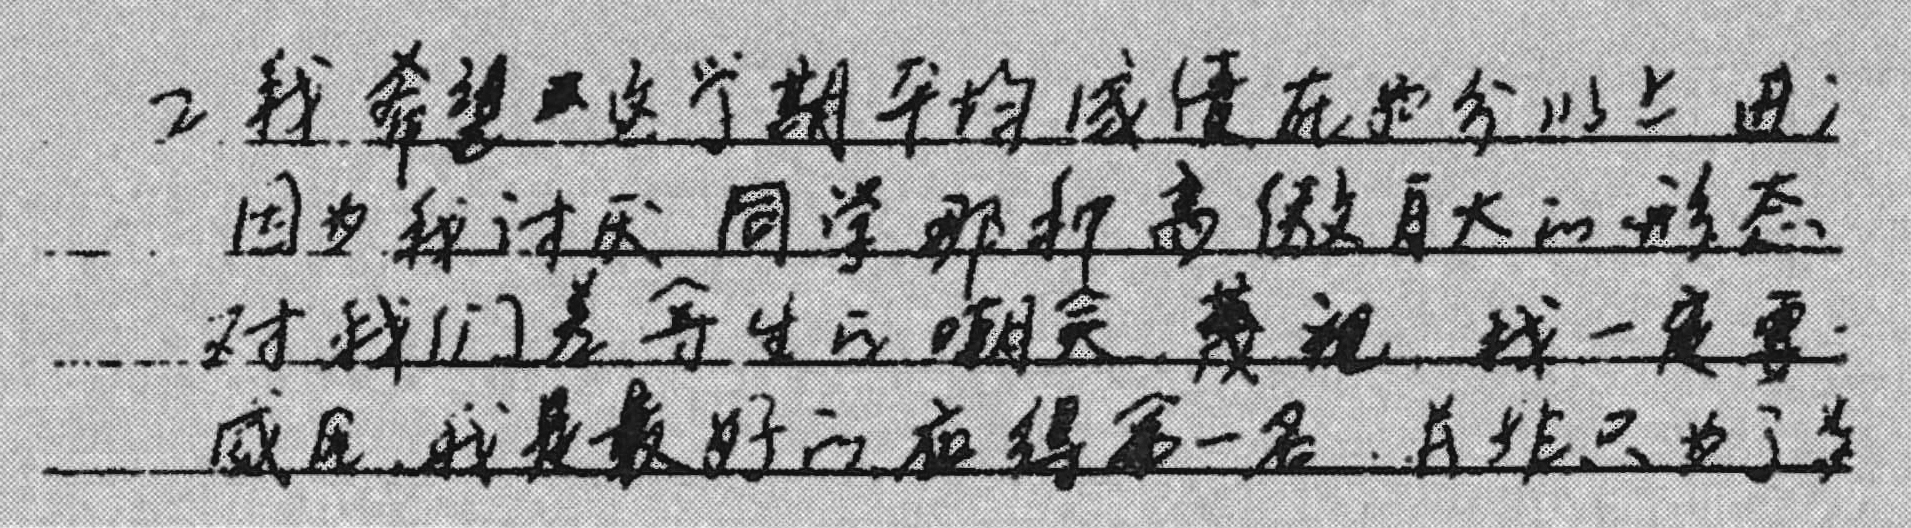 2 我希望这学期平均成绩在90分以上
因为我讨厌同学那种高傲自大的形态
对我们差等生的嘲笑蔑视 我一定要
我是最好的 应得第一名 并非只为了